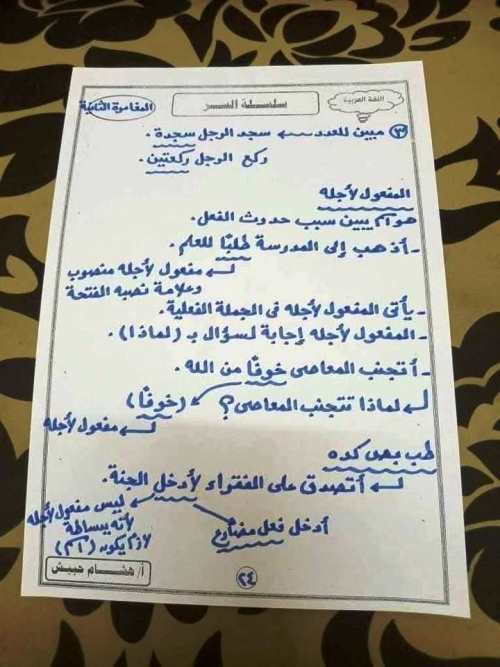 اللغة العربية
سلسلة النسر
المغامرة الثانية
٣ مبين للعدد ← سجد الرجل سجدة.
ركع الرجل ركعتين.
المفعول لأجله
هو اسم يبين سبب حدوث الفعل.
- أذهب إلى المدرسة طلبًا للعلم.
مفعول لأجله منصوب
وعلامة نصبه الفتحة
- يأتى المفعول لأجله فى الجملة الفعلية.
- المفعول لأجله إجابة لسؤال بـ (لماذا).
- أتجنب المعاصى خوفًا من الله.
لماذا تتجنب المعاصى؟ (خوفًا)
مفعول لأجله
طب بص كده
أتصدق على الفقراء لأدخل الجنة.
ليس مفعول لأجله
لأنه ببساطة
لازم يكون (اسم)
أدخل فعل مضارع
أ/ هشام حبيش
٢٤